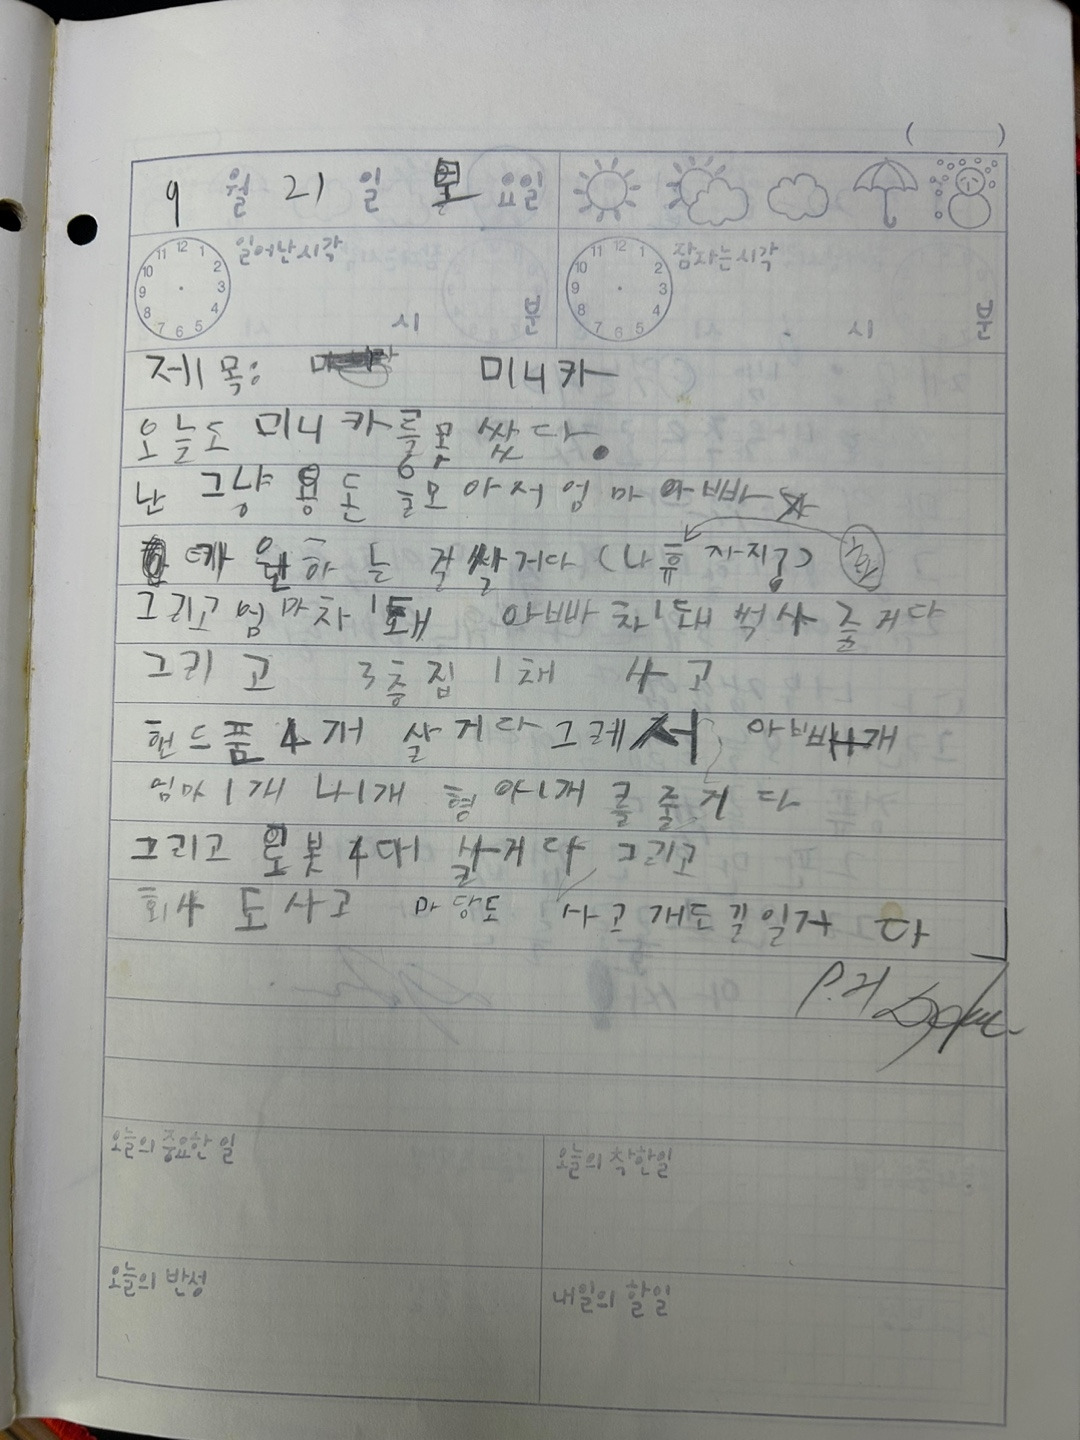 ( )
9 월 21 일 목 요일
일어난시각 시 분 잠자는시각 시 분
12 1 2 3 4 5 6 7 8 9 10 11
12 1 2 3 4 5 6 7 8 9 10 11
제목: 미니카
오늘도 미니카를 못 쌌다.
난 그냥 용돈을 모아서 엄마 아빠
원하는 걸 쌀거다 (나 휴 자징) 화
그리고 엄마차 1대 아빠 차 1대 씩 사 줄거다
그리고 3층집 1채 사고
헨드폼 4개 살거다 그레서 아빠 1개
엄마 1개 나 1개 형아 1개 를 줄거다
그리고 로봇 4대 살거다 그리고
회사도 사고 마당도 사고 개도 길일거다
P.H
오늘의 중요한 일
오늘의 착한일
오늘의 반성
내일의 할일